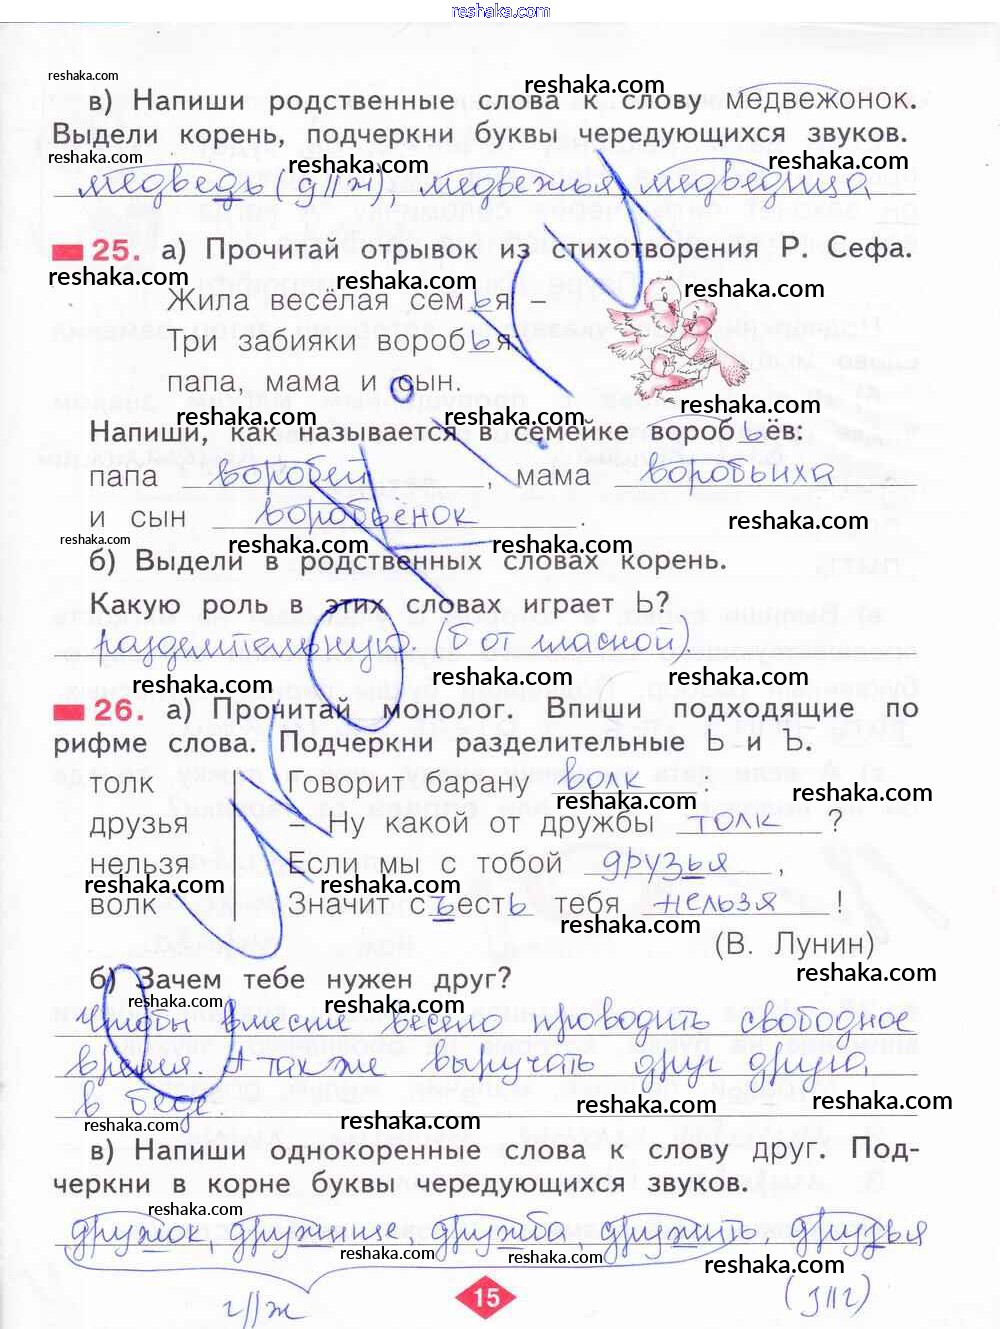 reshaka.com
reshaka.com
reshaka.com
в) Напиши родственные слова к слову медвежонок.
Выдели корень, подчеркни буквы чередующихся звуков.
reshaka.com reshaka.com reshaka.com
медведь (д||ж), медвежья, медведица
25. а) Прочитай отрывок из стихотворения Р. Сефа.
reshaka.com reshaka.com reshaka.com
Жила весёлая семья –
Три забияки воробья:
папа, мама и сын.
reshaka.com reshaka.com reshaka.com
Напиши, как называется в семейке воробьёв:
папа воробей, мама воробьиха
и сын воробьёнок.
reshaka.com
reshaka.com reshaka.com reshaka.com
б) Выдели в родственных словах корень.
Какую роль в этих словах играет Ь?
разделительную. (б от гласной).
reshaka.com reshaka.com reshaka.com
26. а) Прочитай монолог. Впиши подходящие по
рифме слова. Подчеркни разделительные Ь и Ъ.
толк Говорит барану волк:
reshaka.com reshaka.com reshaka.com
друзья – Ну какой от дружбы толк?
нельзя Если мы с тобой друзья,
reshaka.com reshaka.com
волк Значит съесть тебя нельзя!
reshaka.com
(В. Лунин)
б) Зачем тебе нужен друг?
reshaka.com reshaka.com reshaka.com
Чтобы вместе весело проводить свободное
время. А также выручать друг друга
в беде.
reshaka.com reshaka.com reshaka.com reshaka.com
в) Напиши однокоренные слова к слову друг. Под-
черкни в корне буквы чередующихся звуков.
reshaka.com reshaka.com reshaka.com
дружок, дружище, дружба, дружить, друзья
reshaka.com reshaka.com reshaka.com
г||ж 15 (з||г)